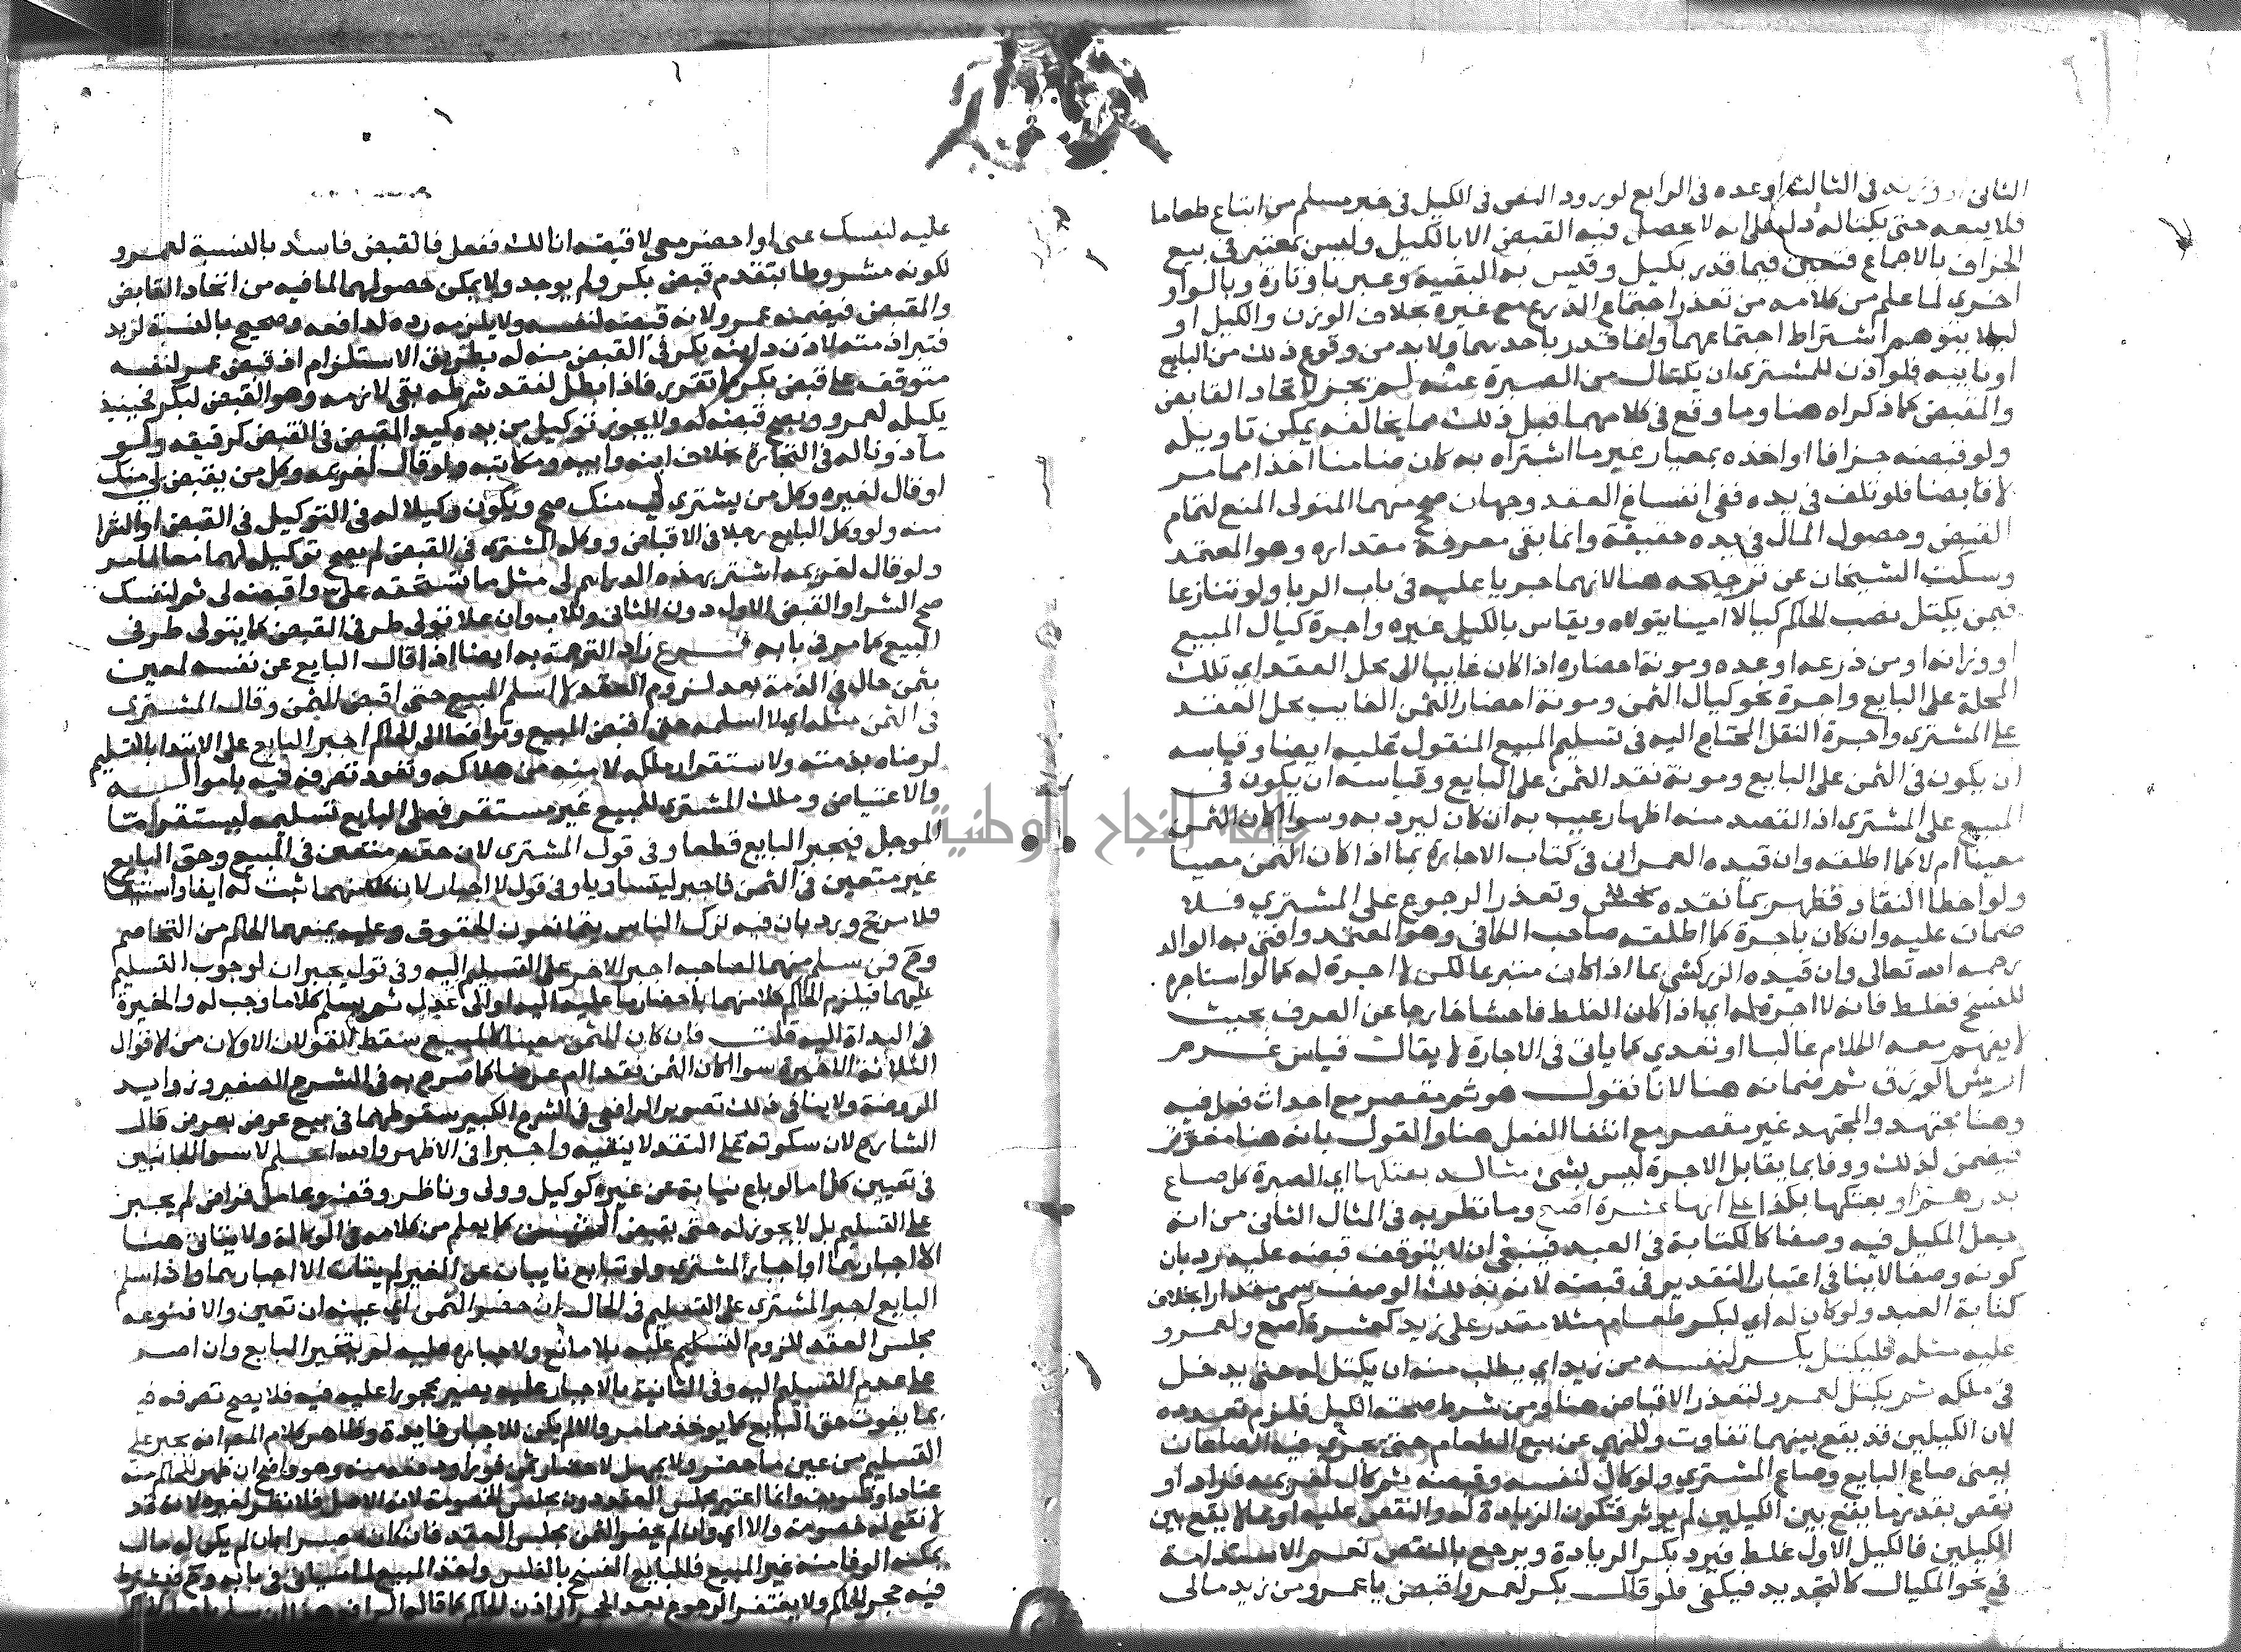 الثانى او وزنه فى الثالث او عده فى الرابع لورود النص فى الكيل فى خبر مسلم من ابتاع طعاما
فلا يبعه حتى يكتاله دل على انه لا يحصل فيه القبض الا بالكيل وليس بمعتبر فى بيع
الجزاف بالاجماع فتعين فيما قدر بكيل وقيس به البقية وعبر باو تارة وبالواو
اخرى لما علم من كلامه من تعذر اجتماع الذرع مع غيره بخلاف الوزن والكيل او
ليلا يتوهم اشتراط اجتماعهما وانما قدر باحدهما ولا بد من وقوع ذلك من البايع
او نايبه فلو اذن للمشترى ان يكتال من الصبرة عنه لم يجز لاتحاد القابض
والمقبض كما ذكراه هنا وما وقع فى كلامهما قبل ذلك مما يخالفه يمكن تاويله
ولو قبضه جزافا او اخذه بمعيار غير ما اشتراه به كان ضامنا اخذا مما مر
لا قابضا فلو تلف فى يده ففى انفساخ العقد وجهان صح منهما المتولى المنع لتمام
القبض وحصول المال فى يده حقيقة وانما بقى معرفة مقداره وهو المعتمد
وسكت الشيخان عن ترجيحه هنا لانهما جريا عليه فى باب الربا ولو تنازعا
فيمن يكتل نصب الحاكم كيالا امينا يتولاه ويقاس بالكيل غيره واجرة كيال المبيع
او وزانه او من ذرعه او عده ومونة احضاره اذا كان غايبا الى محل العقد اي تلك
المحلة على البايع واجرة نحو كيال الثمن ومونة احضار الثمن الغايب محل العقد
على المشترى واجرة النقل المحتاج اليه فى تسليم المبيع المنقول عليه ايضا وقياسه
ان يكون فى الثمن على البايع ومونة نقد الثمن على البايع وقياسه ان يكون فى
المبيع على المشترى اذ القصد منه اظهار عيب به ان كان ليرد به وسوا اكان الثمن
معينا ام لا كما اطلقه وان قيده العمرانى فى كتاب الاجارة بما اذا كان الثمن معينا
ولو اخطا النقاد فظهر بما نقده غش وتعذر الرجوع على المشتري فلا
ضمان عليه وان كان باجرة كما اطلقه صاحب الكافى وهو المعتمد وافتى به الوالد
رحمه الله تعالى وان قيده الزركشي بما اذا كان متبرعا لكن لا اجرة له كما لو استاجره
للنسخ فغلط فانه لا اجرة له اي اذا كان الغلط فاحشا خارجا عن العرف بحيث
لا يفهم معه الكلام غالبا او تعدي كما ياتى فى الاجارة لا يقال قياس غرم
ارش الورق ثم ضمانه هنا لانا نقول هو ثم مقصر مع احداث فعل فيه
وهنا مجتهد والمجتهد غير مقصر مع انتفا الفعل هنا والقول بانه هنا مغرر
فيضمن لذلك ووفا بما يقابل الاجرة ليس بشئ مثاله بعتكها اي الصبرة كل صاع
بدرهم او بعتكها بكذا على انها عشرة اصع وما نظر به فى المثال الثانى من انه
جعل الكيل فيه وصفا كالكتابة فى العبد فينبغى ان لا يتوقف قبضه عليه رد بان
كونه وصفا لا ينافى اعتبار التقدير فى قبضه لانه بذلك الوصف سمى مقدارا بخلاف
كتابة العبد ولو كان له اي لبكر طعام مثلا مقدر على زيد كعشرة اصع ولعمرو
عليه مثله فليكتل بكر لنفسه من زيد اي يطلب منه ان يكتل له حتى يدخل
فى ملكه ثم يكتل لعمرو لتعذر الاقباض هنا ومن شرط صحته الكيل فلزم تعدده
لان الكيلين قد يقع بينهما تفاوت وللنهي عن بيع الطعام حتى يجرى فيه الصاعان
يعنى صاع البايع وصاع المشتري ولو كال لنفسه وقبضه ثم كال لغريمه فزاد او
نقص بقدر ما يقع بين الكيلين لم يوثر فتكون الزيادة له والنقص عليه او بما لا يقع بين
الكيلين فالكيل الاول غلط فيرد بكر الزيادة ويرجع بالنقص نعم الاستدامة
فى نحو المكيال كالتجديد فيكفى فلو قال بكر لعمرو اقبض يا عمرو من زيد مالى
عليه لنفسك عنى او احضر معى لاقبضه انا لك ففعل فالقبض فاسد بالنسبة لعمرو
لكونه مشروطا بتقدم قبض بكر ولم يوجد ولا يمكن حصولهما لما فيه من اتحاد القابض
والمقبض فيضمنه عمرو لانه قبضه لنفسه ولا يلزمه رده لدافعه وصحيح بالنسبة لزيد
فتبرا ذمته لاذن داينه بكر فى القبض منه له بطريق الاستلزام اذ قبض عمر لنفسه
متوقف على قبض بكر كما تقرر فاذا بطل لفقد شرطه بقى لازمه وهو القبض لبكر فحينيذ
يكيله لعمرو ويصح قبضه له ولا يجوز توكيل من يده كيد المقبض فى القبض كرقيقه ولو
ماذونا له فى التجارة بخلاف ابنه وابيه ومكاتبه ولو قال لغريمه وكل من يقبض لى منك
او قال لغيره وكل من يشترى لى منك صح ويكون وكيلا له فى التوكيل فى القبض او الشرا
منه ولو وكل البايع رجلا فى الاقباض ووكله المشترى فى القبض لم يصح توكيله لهما معا لما مر
ولو قال لغريمه اشتر بهذه الدراهم لى مثل ما تستحقه على واقبضه لى ثم لنفسك
صح الشرا والقبض الاول دون الثانى وللاب وان علا تولى طرفى القبض كما يتولى طرفى
البيع كما مر فى بابه فرع زاد الترجمة به ايضا اذا قال البايع عن نفسه لمعين
بثمن حال فى الذمة بعد لزوم العقد لا اسلم المبيع حتى اقبض الثمن وقال المشترى
فى الثمن مثله اي لا اسلمه حتى اقبض المبيع وترافعا الى الحاكم اجبر البايع على الابتدا بالتسليم
لرضاه بذمته ولاستقرار ملكه لامنه من هلاكه ونفوذ تصرفه فيه بالحوالة
والاعتياض وملك المشترى للمبيع غير مستقر فعلى البايع تسليمه ليستقر اما
الموجل فيجبر البايع قطعا وفى قول المشترى لان حقه متعين فى المبيع وحق البايع
غير متعين فى الثمن فاجبر ليتساويا وفى قول لا اجبار لان كلا منهما ثبت له ايفا واستيفا
فلا مرجح ورد بان فيه ترك الناس يتمانعون الحقوق وعليه يمنعهما الحاكم من التخاصم
وح فمن سلم منهما لصاحبه اجبر الاخر على التسليم اليه وفى قول يجبران لوجوب التسليم
عليهما فيلزم الحاكم كلا منهما باحضار ما عليه اليه او الى عدل ثم يسلم كلا ما وجب له والخيرة
فى البداة اليه قلت فان كان الثمن معينا كالمبيع سقط القولان الاولان من الاقوال
الثلاثة الاخيرة سوا اكان الثمن نقدا ام عرضا كما صرح به فى الشرح الصغير وزوايد
الروضة ولا ينافى ذلك تصوير الرافعى فى الشرح الكبير سقوطهما فى بيع عرض بعرض قال
الشارح لان سكوته عن النقد لا ينفيه واجبرا فى الاظهر والله اعلم لاستوا الجانبين
فى تعيين كل اما لو باع نيابة عن غيره كوكيل وولى وناظر وقف وعامل قراض لم يجبر
على التسليم بل لا يجوز له حتى يقبض الثمن كما يعلم من كلامه فى الوكالة ولا يتاتى هنا
الا اجبارهما او اجبار المشترى ولو تبايع نايبان عن الغير لم يتات الا اجبارهما واذا سلم
البايع اجبر المشترى على التسليم فى الحال ان حضر الثمن اي عينه ان تعين والا فنوعه
مجلس العقد للزوم التسليم عليه بلا مانع ولاجباره عليه لم يتخير البايع وان اصر
على عدم التسليم اليه وفى الثانية بالاجبار عليه يصير محجورا عليه فيه فلا يصح تصرفه فيه
بما يفوت حق البايع كما يوخذ مما مر والا لم يكن للاجبار فايدة وظاهر كلام المص انه يجبر على
التسليم من عين ما حضر ولا يمهل لاحضار ثمن فورا ودفعه منه وهو واضح ان ظهر للحاكم منه
عنادا وتسويف وانما اعتبر مجلس العقد دون مجلس الخصومة لانه الاصل فلا نظر لغيره لانه قد
لا تقع له خصومة والا اي وان لم يحضر الثمن مجلس العقد فان كان معسرا بان لم يكن له مال
يمكنه الوفا منه غير المبيع فللبايع الفسخ بالفلس واخذ المبيع لما سياتى فى بابه وح فيشترط
فيه حجر الحاكم ولا يفتقر الرجوع بعد الحجر الى اذن الحاكم كما قاله الرافعى